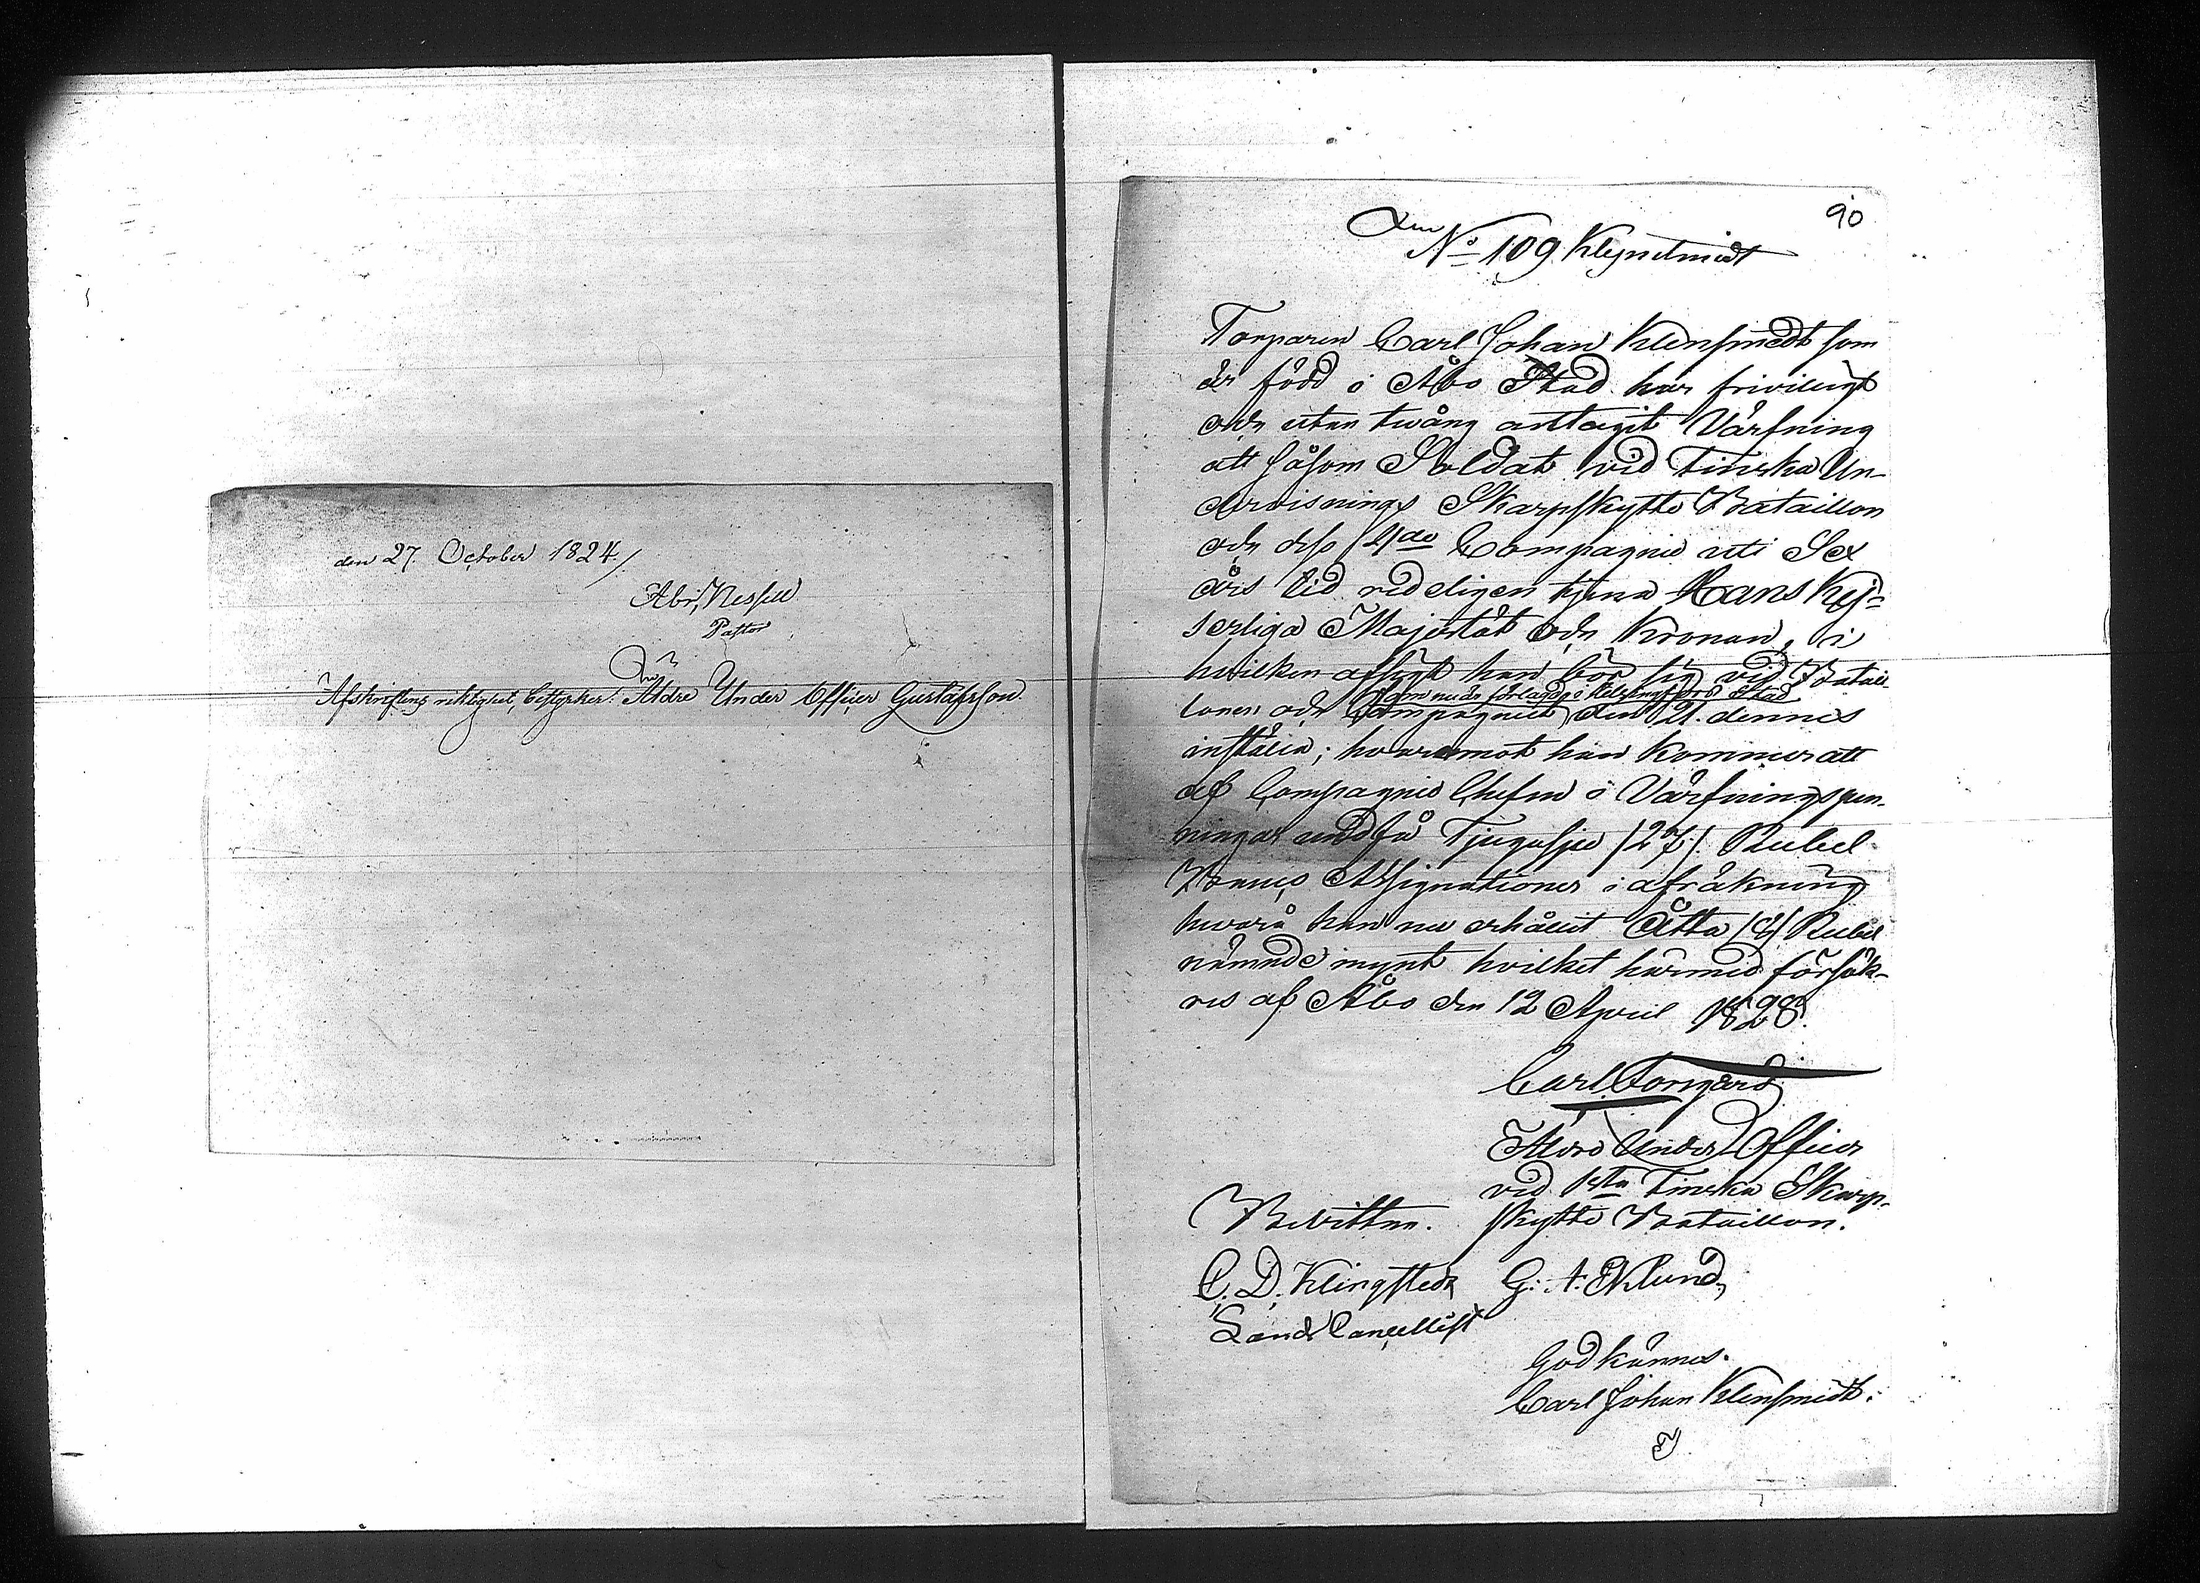 den 27. October 1824./
Abr. Nesseu
Pastor
Afskriftens riktighet, bestyrker: Äldre Under Officer Gustafsson
90
No 109 Kleynsmidt
Torparen Carl Johan Klensmedt som
är född i Åbo Stad har frivilligt
och utan twång antagit Värfning
att såsom Soldat vid Finska Un-
dervisnings Skarpskytte Bataillon
och dess 4de Compagnie uti Sex
års tid redeligen tjena Hans Kej-
serliga Majestät och Kronan, i
hvilken afsigt han bör sig vid Batail-
som nu är förlagdt i Helsingfors Stad
lonen och Compagniet den 21. dennes
inställa; hvaremot han kommer att
af Compagnie Chefen i Värfningspen-
ningar undfå Tjugusju /27/. Rubel
Banco Assignationer i afräkning
hvarå han nu erhållit Åtta /8/ Rubel
nämnde mynt hvilket härmed försäk-
ras af Åbo den 12 April 1828.
Carl Forsgård
Äldre Under Officer
vid 1sta Finska Skarp-
skytte Bataillon.
Bevittna.
C. D. Klingstedt
Lands Cancellist
G. A. Eklund
Godkännes.
Carl Johan Klensmidt.